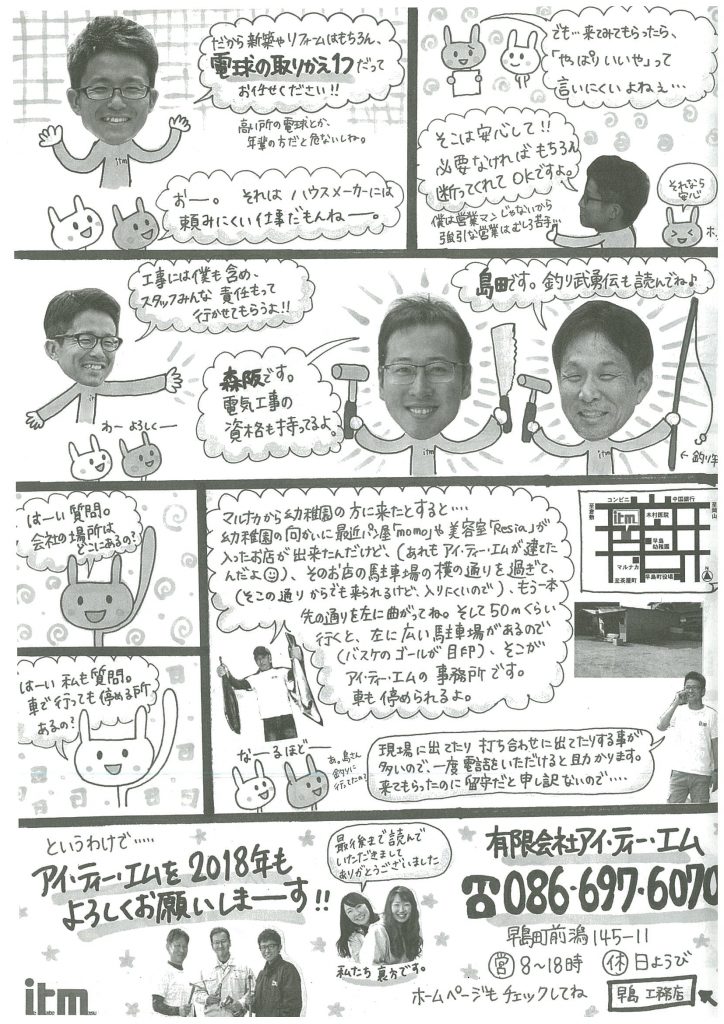 だから新築やリフォームはもちろん、
電球の取りかえ1つだって
お任せください!!
高い所の電球とか、
年輩の方だと危ないしね。
itm
おー。それはハウスメーカーには
頼みにくい仕事だもんねー。
でも…来てみてもらったら、
「やっぱりいいや」って
言いにくいよねぇ…
そこは安心して!!
必要なければもちろん
断ってくれてOKですよ。
僕は営業マンじゃないから
強引な営業はむしろ苦手…
それなら
安心
ホ
工事には僕も含め、
スタッフみんな責任もって
行かせてもらうよ!!
わー よろしくー
森阪です。
電気工事の
資格も持ってるよ。
itm
島田です。釣り武勇伝も読んでね♪
itm
← 釣り
はーい質問。
会社の場所は
どこにあるの?
はーい 私も質問。
車で行っても停める所
あるの?
マルナカから幼稚園の方に来たとすると…。
幼稚園の向かいに最近パン屋「momo」や美容室「Resia」が
入ったお店が出来たんだけど、(あれもアイ・ティー・エムが建てた
んだよ☺)、そのお店の駐車場の横の通りを過ぎて、
(そこの通りからでも来られるけど、入りにくいので)、もう一本
先の通りを左に曲がってね。そして50mくらい
行くと、左に広い駐車場があるので
(バスケのゴールが目印)、そこが
アイ・ティー・エムの事務所です。
車も停められるよ。
なーるほどー
あ、島さん
釣りに
行ってたの?
コンビニ
中国銀行
至倉敷
至岡山
itm
木村医院
早島
幼稚園
マルナカ
至茶屋町
早島町役場
現場に出てたり打ち合わせに出てたりする事が
多いので、一度電話をいただけると助かります。
来てもらったのに留守だと申し訳ないので…。
というわけで……
アイ・ティー・エムを2018年も
よろしくお願いしまーす!!
itm
最後まで読んで
いただきまして
ありがとうございました
私たち裏方です。
有限会社アイ・ティー・エム
☎086-697-6070
早島町前潟145-11
営 8~18時 休 日ようび
ホームページもチェックしてね 早島 工務店